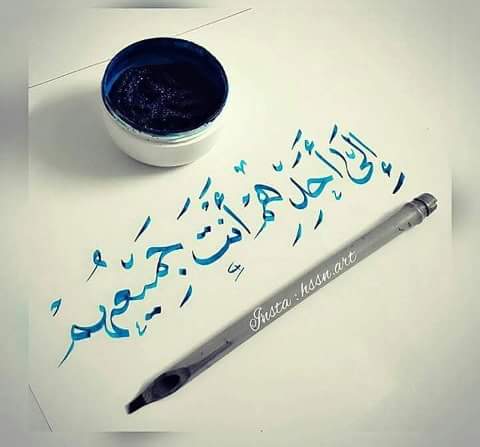 إِلَىٰ أَحَدِهِمْ أَنْتِ جَمِيعُهُمْ
Insta : hssn.art